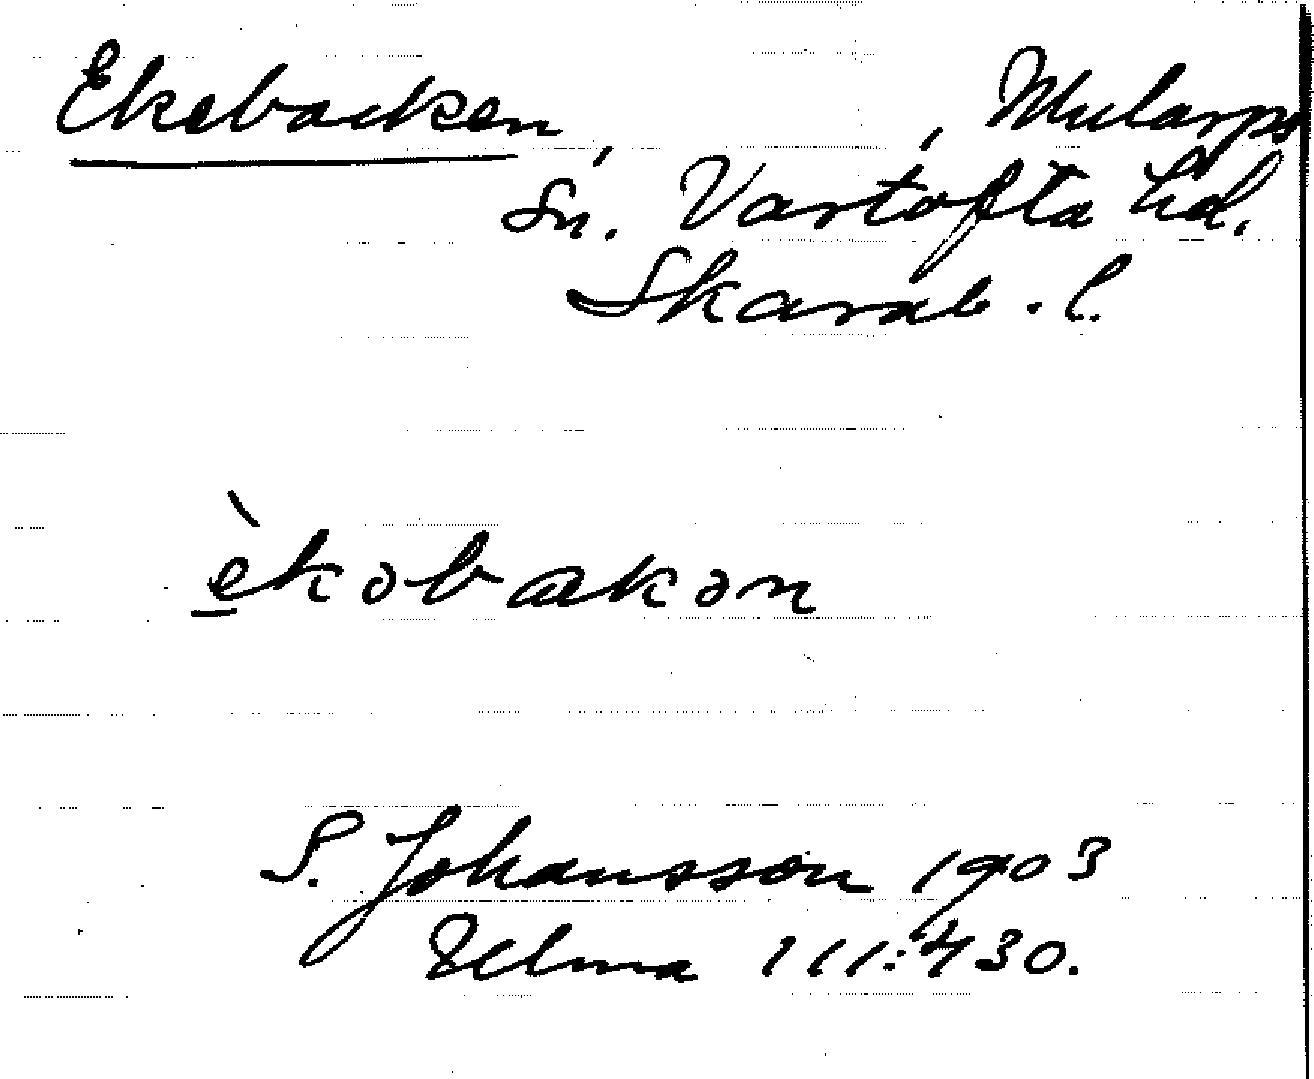 Ekebacken, , Mularps
Sn. Vartofta hd.
Skarab. l.
è̱kəbakən
S. Johansson 1903
Ulma 111:430.